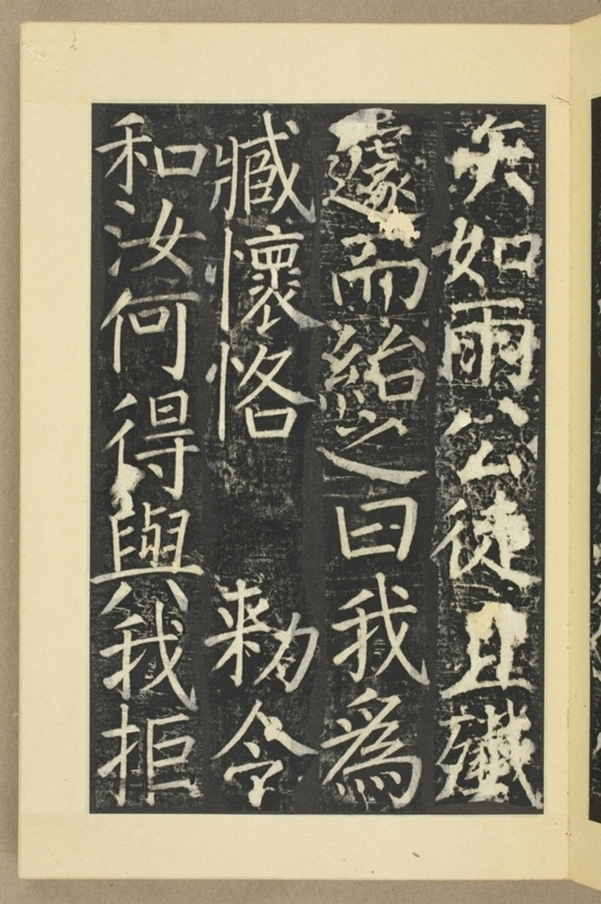 矢如雨公徒且殲
遽而紿之曰我為
臧懷恪　勑令
和汝何得與我拒